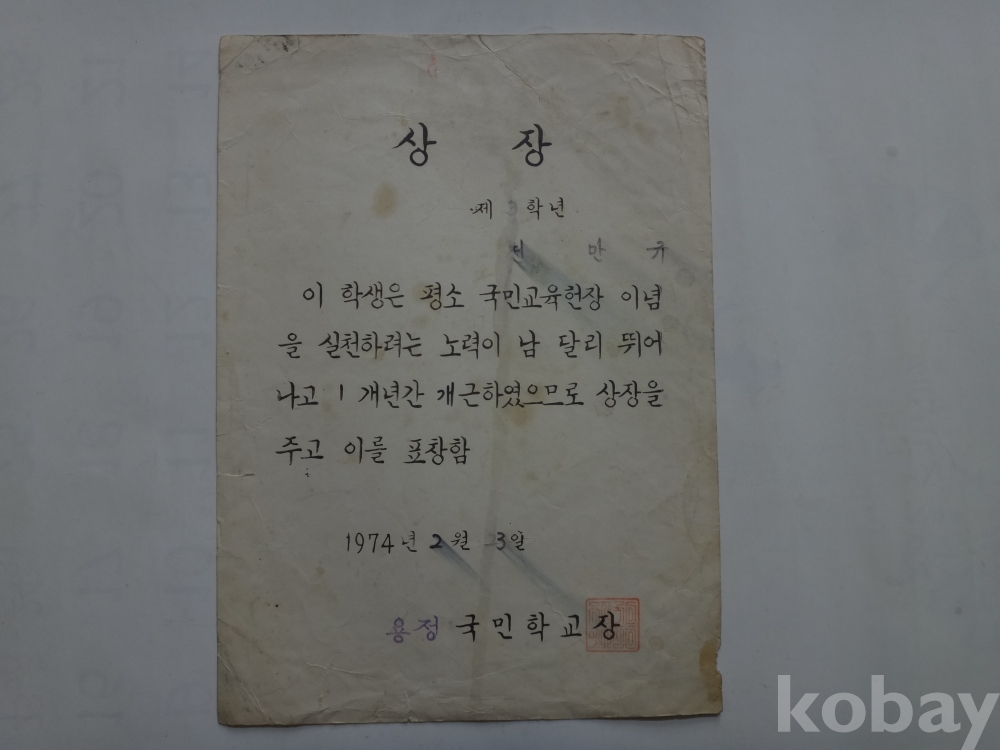 상 장
제 3 학년
만 규
이 학생은 평소 국민교육헌장 이념
을 실천하려는 노력이 남 달리 뛰어
나고 1 개년간 개근하였으므로 상장을
주고 이를 표창함
1974년 2월 23일
용정 국민학교장
kobay